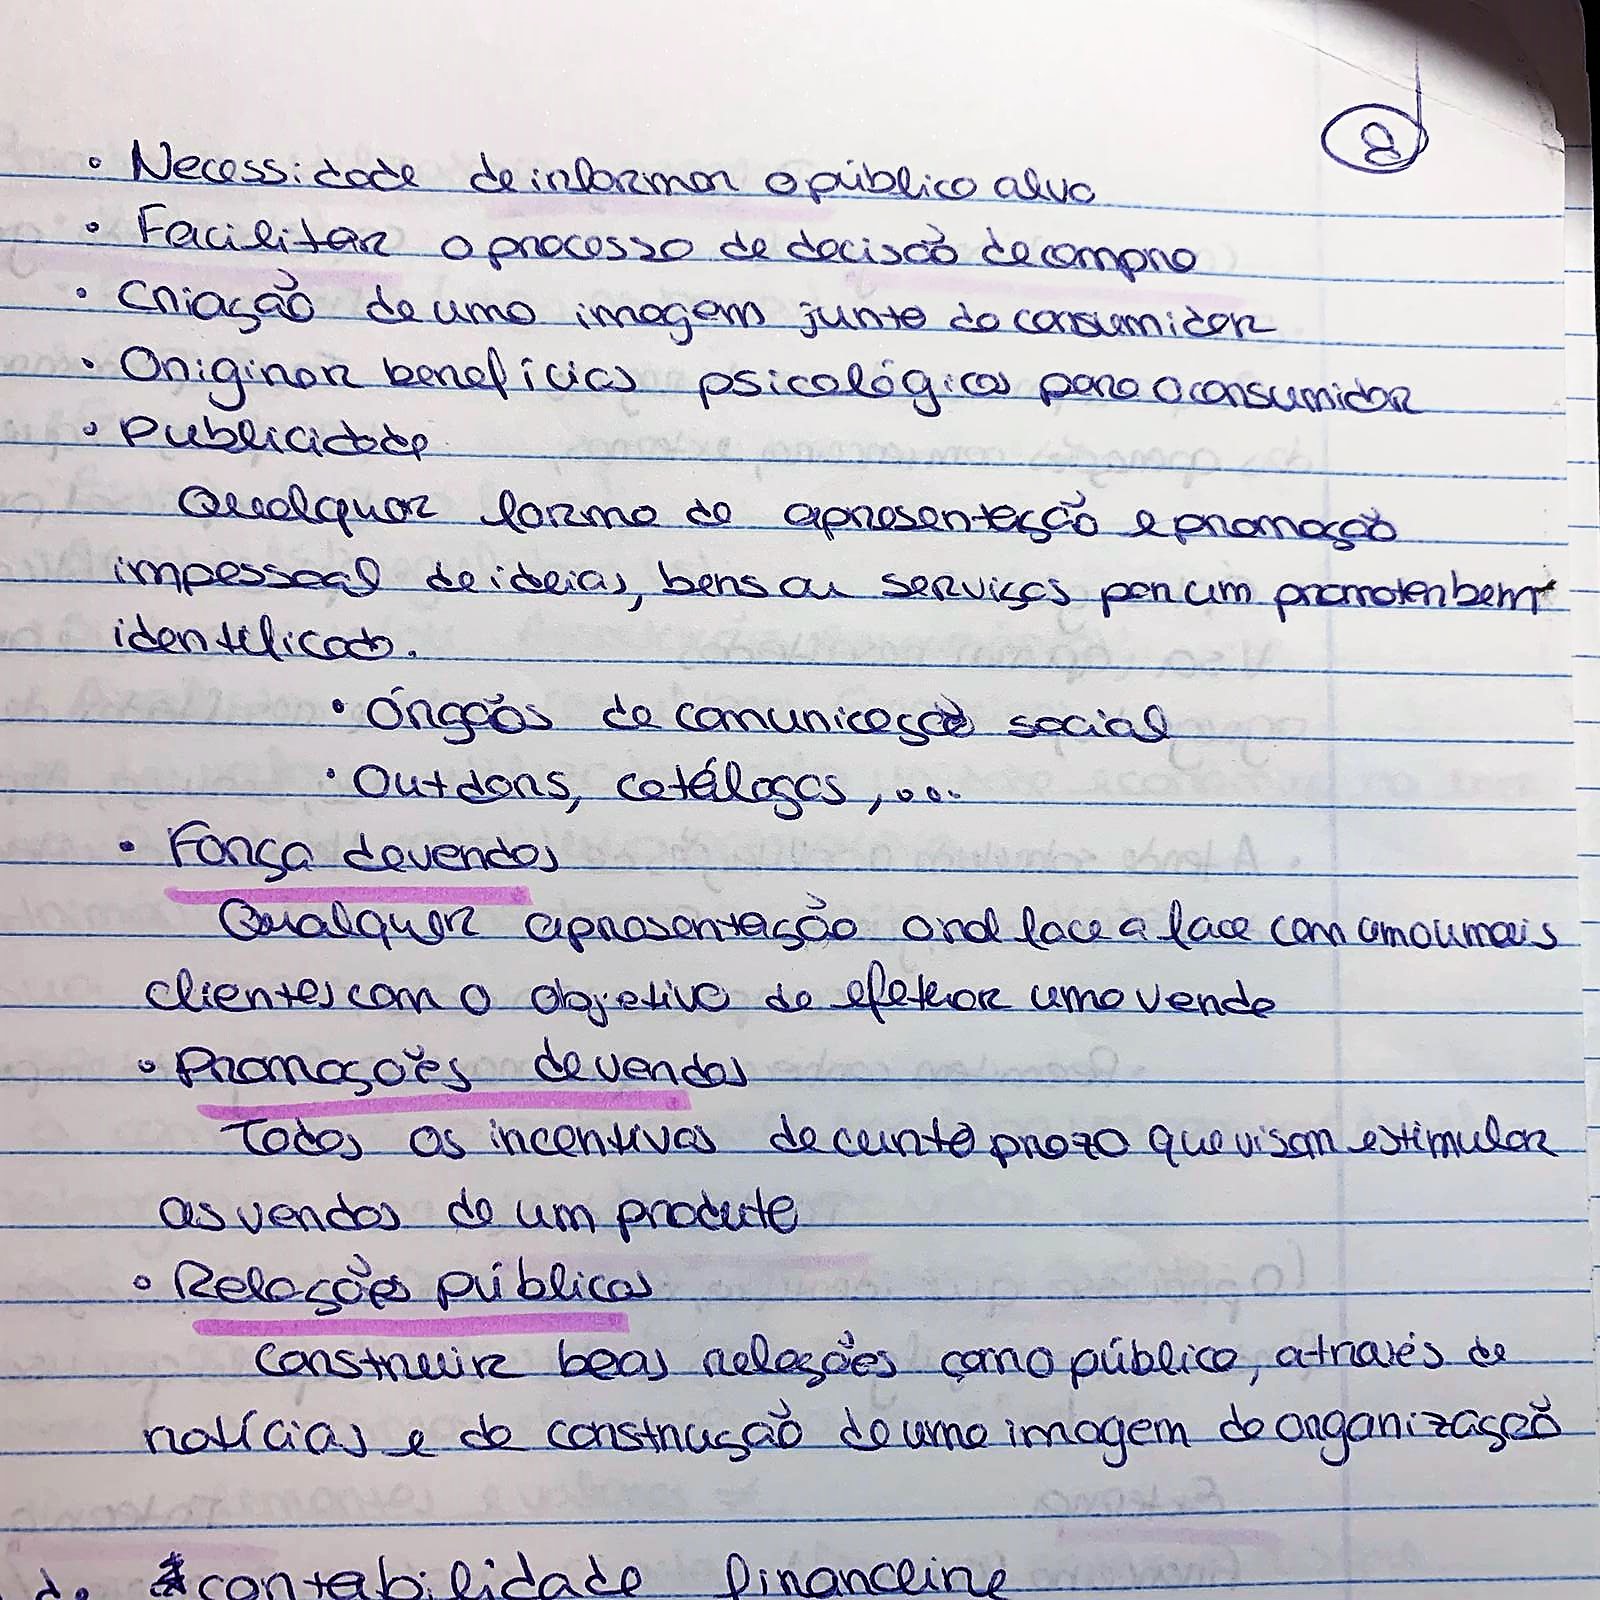 8
• Necessidade de informar o público alvo
• Facilitar o processo de decisão de compra
• Criação de uma imagem junto do consumidor
• Originar benefícios psicológicos para o consumidor
• Publicidade
Qualquer forma de apresentação e promoção
impessoal de ideias, bens ou serviços por um promotor bem
identificado.
• Órgãos de comunicação social
• Outdors, catálogos, ...
• Força de vendas
Qualquer apresentação oral face a face com um ou mais
clientes com o objetivo de efetuar uma venda
• Promoções de vendas
Todos os incentivos de curto prazo que visam estimular
as vendas de um produto
• Relações públicas
Construir boas relações com o público, através de
notícias e da construção de uma imagem da organização
contabilidade financeira